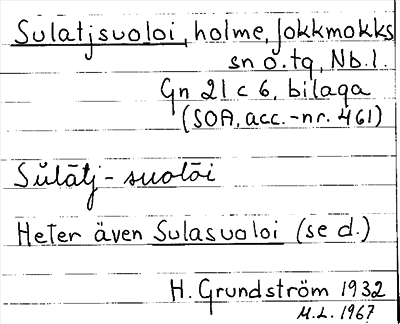 Sulatjsuoloi, holme, Jokkmokks
sn o. tg, Nb. l.
Gn 21 c 6, bilaga
(SOA, acc.-nr. 461)
Sŭlātj - suolōi
Heter även Sulasuoloi (se d.)
H. Grundström 1932
M.L. 1967